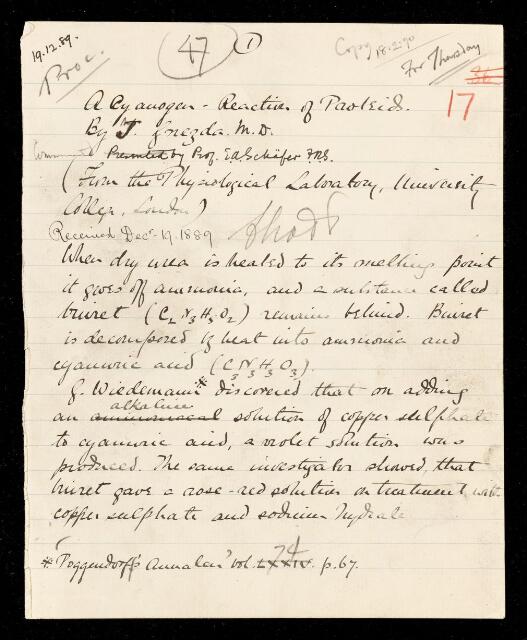 19.12.89.
47
1
Copy 18.2.90
For Thursday
Proc.
17
A Cyanogen-Reaction of Proteids.
By J. Gnezda. M.D.
Presented by Prof. E.A. Schäfer F.R.S.
(From the Physiological Laboratory, University
College, London)
Received Decr. 19. 1889
When dry urea is heated to its melting point
it gives off ammonia, and a substance called
biuret (C2N3H5O2) remains behind. Biuret
is decomposed by heat into ammonia and
cyanuric acid (C3N3H3O3).
G. Wiedemann* discovered that on adding
alkaline
an ammoniacal solution of copper sulphate
to cyanuric acid, a violet solution was
produced. The same investigator showed, that
biuret gave a rose-red solution on treatment with
copper sulphate and sodium hydrate
74
* 'Poggendorff's Annalen' vol. LXXIV. p.67.